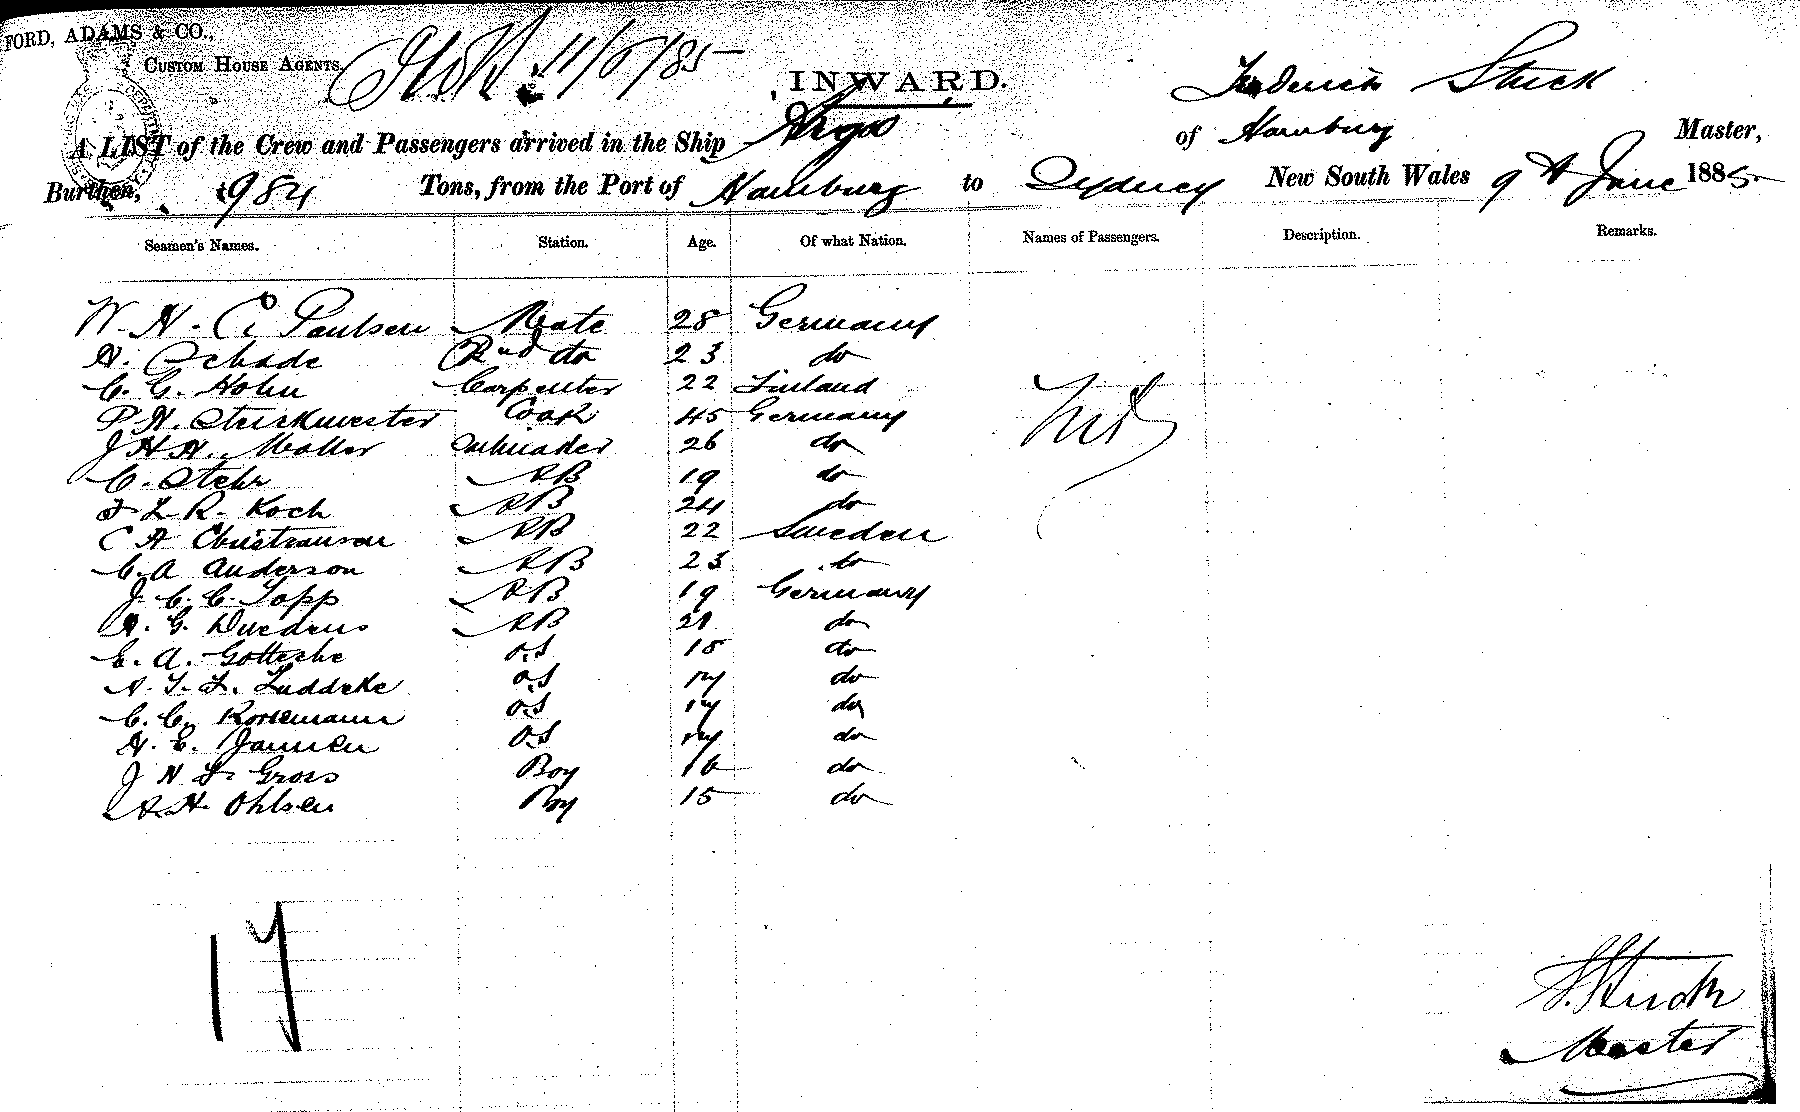 FORD, ADAMS & CO.,
CUSTOM HOUSE AGENTS.
11/6/85
INWARD.
Frederick Stuck
A LIST of the Crew and Passengers arrived in the Ship Argo of Hamburg Master,
Burthen, 984 Tons, from the Port of Hamburg to Sydney New South Wales 9th June 1885.
Seamen's Names. Station. Age. Of what Nation. Names of Passengers. Description. Remarks.
W. H. C. Paulsen Mate 28 Germany
H. Schade 2nd do 23 do
C. G. Holm Carpenter 22 Finland
P. H. Cook 45 Germany
J H H. Moller 26 do
C. Stehr AB 19 do
F L R. Koch AB 24 do
C A Christiansen AB 22 Sweden
C. A Anderson AB 23 do
J. C. C. Topp AB 19 Germany
H. G. AB 21 do
E. A. OS 18 do
H. T. F. Luddeke OS 17 do
C. C. OS 17 do
H. E. Jannsen OS 17 do
J H F. Gross Boy 16 do
A. H. Ohlsen Boy 15 do
Nil
17
F. Stuck
Master